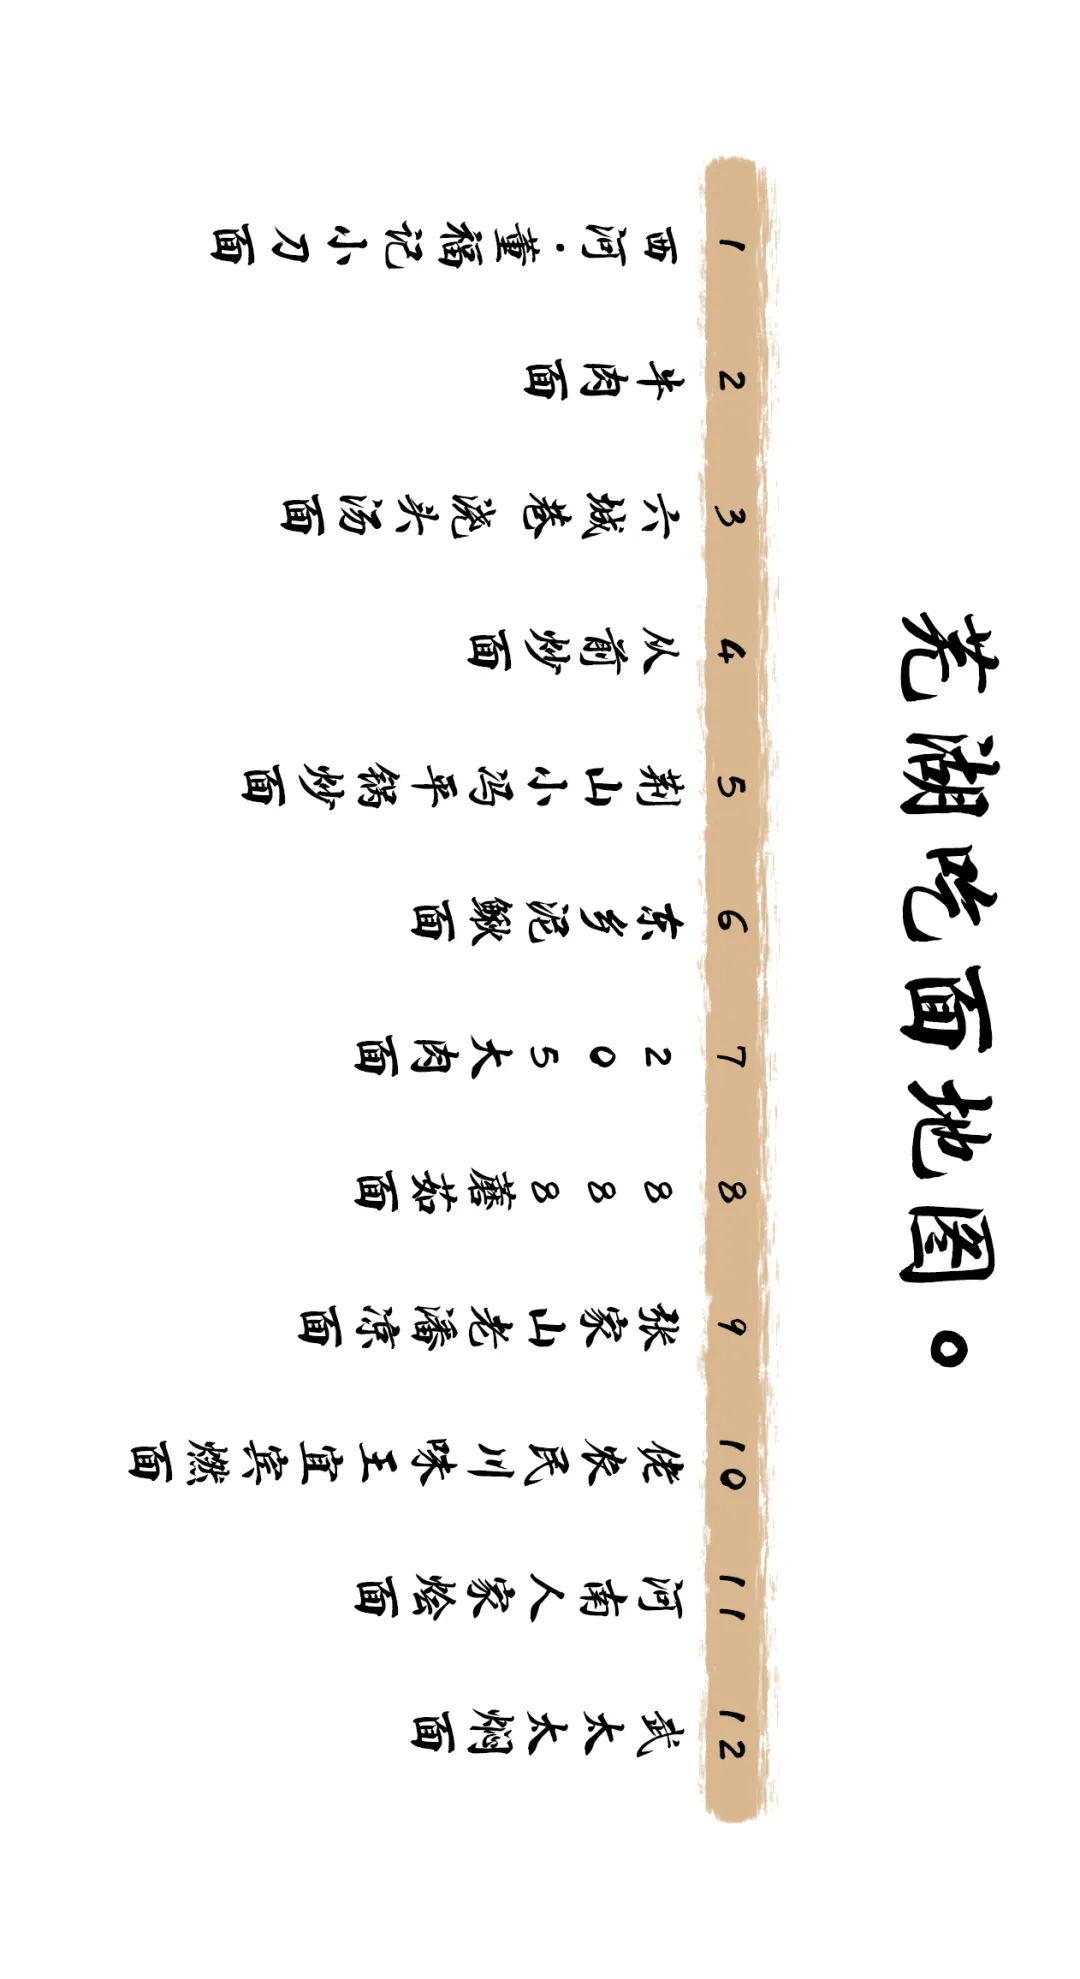 芜湖吃面地图。
1 西河·董福记小刀面
2 牛肉面
3 六城巷 浇头汤面
4 从前炒面
5 荆山小冯平锅炒面
6 东乡泥鳅面
7 205大肉面
8 888蘑菇面
9 张家山老潘凉面
10 佬农民川味王宜宾燃面
11 河南人家烩面
12 武太太焖面